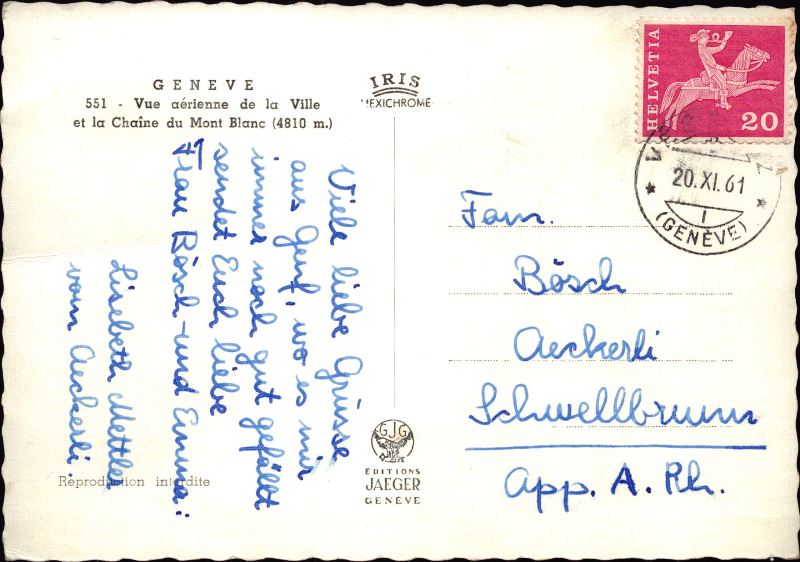 GENEVE
551 - Vue aérienne de la Ville
et la Chaîne du Mont Blanc (4810 m.)
IRIS
MEXICHROME
HELVETIA
20
20.XI.61
1
(GENÈVE)
Viele liebe Grüsse
aus Genf, wo es mir
immer noch gut gefällt
sendet Euch liebe
Frau Bösch und Emma:
Lisebeth Mettler
vom Aeckerli.
Fam.
Bösch
Aeckerli
Schwellbrunn
App. A. Rh.
GJG
ÉDITIONS
JAEGER
GENÈVE
Reproduction interdite